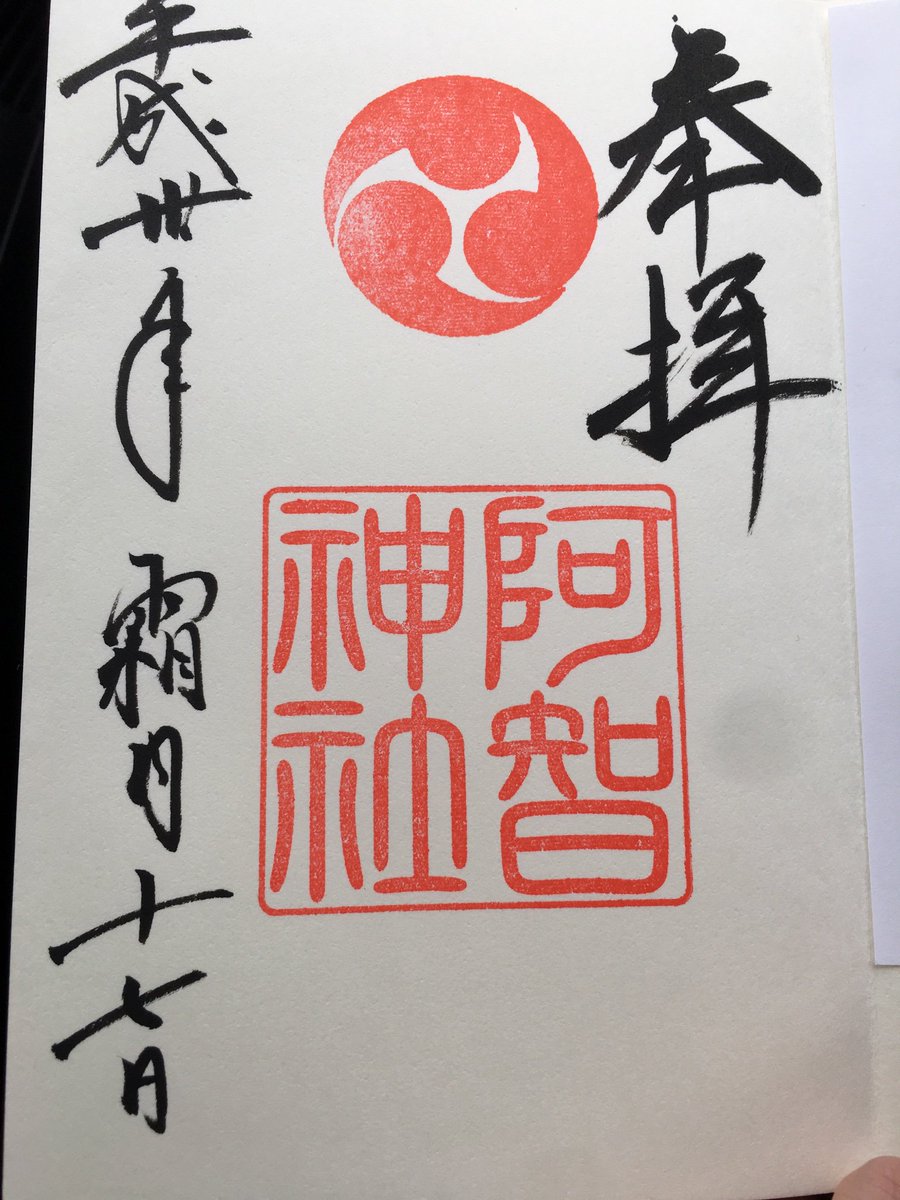 奉拝
阿智
神社
平成卅年 霜月十七日